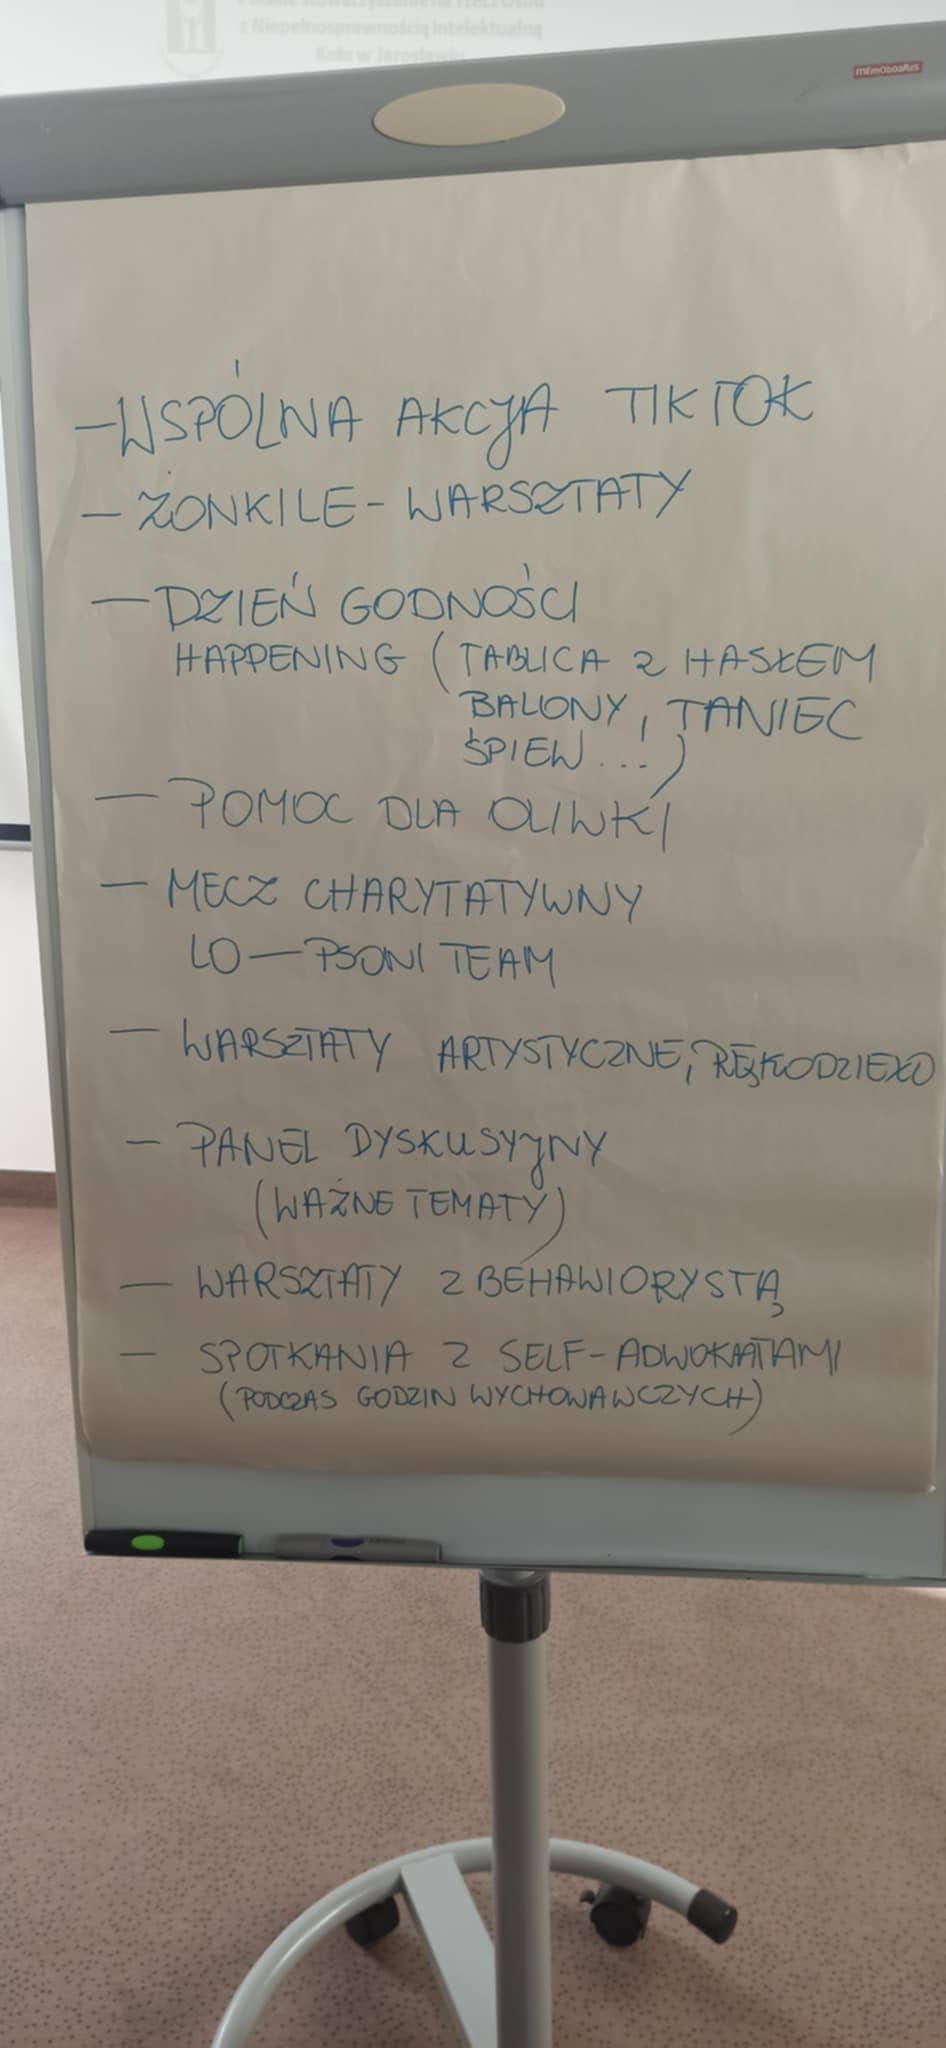 z Niepełnosprawnością Intelektualną
Koło w Jarosławiu
memoboards
- WSPÓLNA AKCJA TIKTOK
- ŻONKILE - WARSZTATY
- DZIEŃ GODNOŚCI
HAPPENING (TABLICA Z HASŁEM
BALONY, TANIEC
ŚPIEW...)
- POMOC DLA OLIWKI
- MECZ CHARYTATYWNY
LO - PSONI TEAM
- WARSZTATY ARTYSTYCZNE, RĘKODZIEŁO
- PANEL DYSKUSYJNY
(WAŻNE TEMATY)
- WARSZTATY Z BEHAWIORYSTĄ
- SPOTKANIA Z SELF-ADWOKATAMI
(PODCZAS GODZIN WYCHOWAWCZYCH)